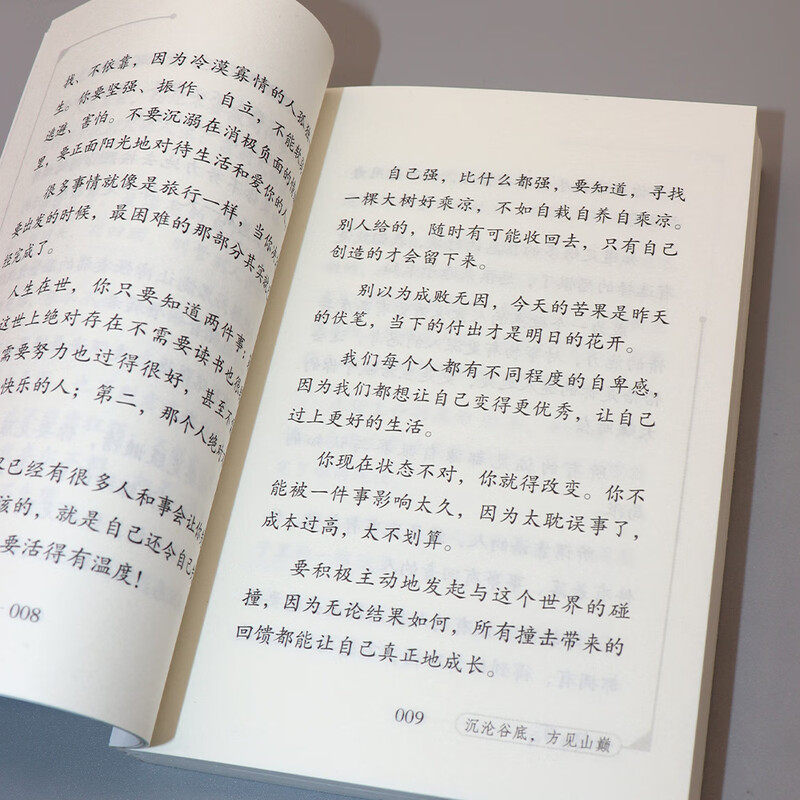 我、不依靠，因为冷漠寡情的人孤
生。你要坚强、振作、自立，不能软
逃避、害怕。不要沉溺在消极负面的
里，要正面阳光地对待生活和爱你的人
很多事情就像是旅行一样，当你
要出发的时候，最困难的那部分其实
经完成了。
人生在世，你只要知道两件事：
这世上绝对存在不需要读书也
需要努力也过得很好，甚至不
快乐的人；第二，那个人绝
已经有很多人和事会让你
该的，就是自己还令自己
要活得有温度！
008
自己强，比什么都强，要知道，寻找
一棵大树好乘凉，不如自栽自养自乘凉。
别人给的，随时有可能收回去，只有自己
创造的才会留下来。
别以为成败无因，今天的苦果是昨天
的伏笔，当下的付出才是明日的花开。
我们每个人都有不同程度的自卑感，
因为我们都想让自己变得更优秀，让自己
过上更好的生活。
你现在状态不对，你就得改变。你不
能被一件事影响太久，因为太耽误事了，
成本过高，太不划算。
要积极主动地发起与这个世界的碰
撞，因为无论结果如何，所有撞击带来的
回馈都能让自己真正地成长。
009
沉沦谷底，方见山巅